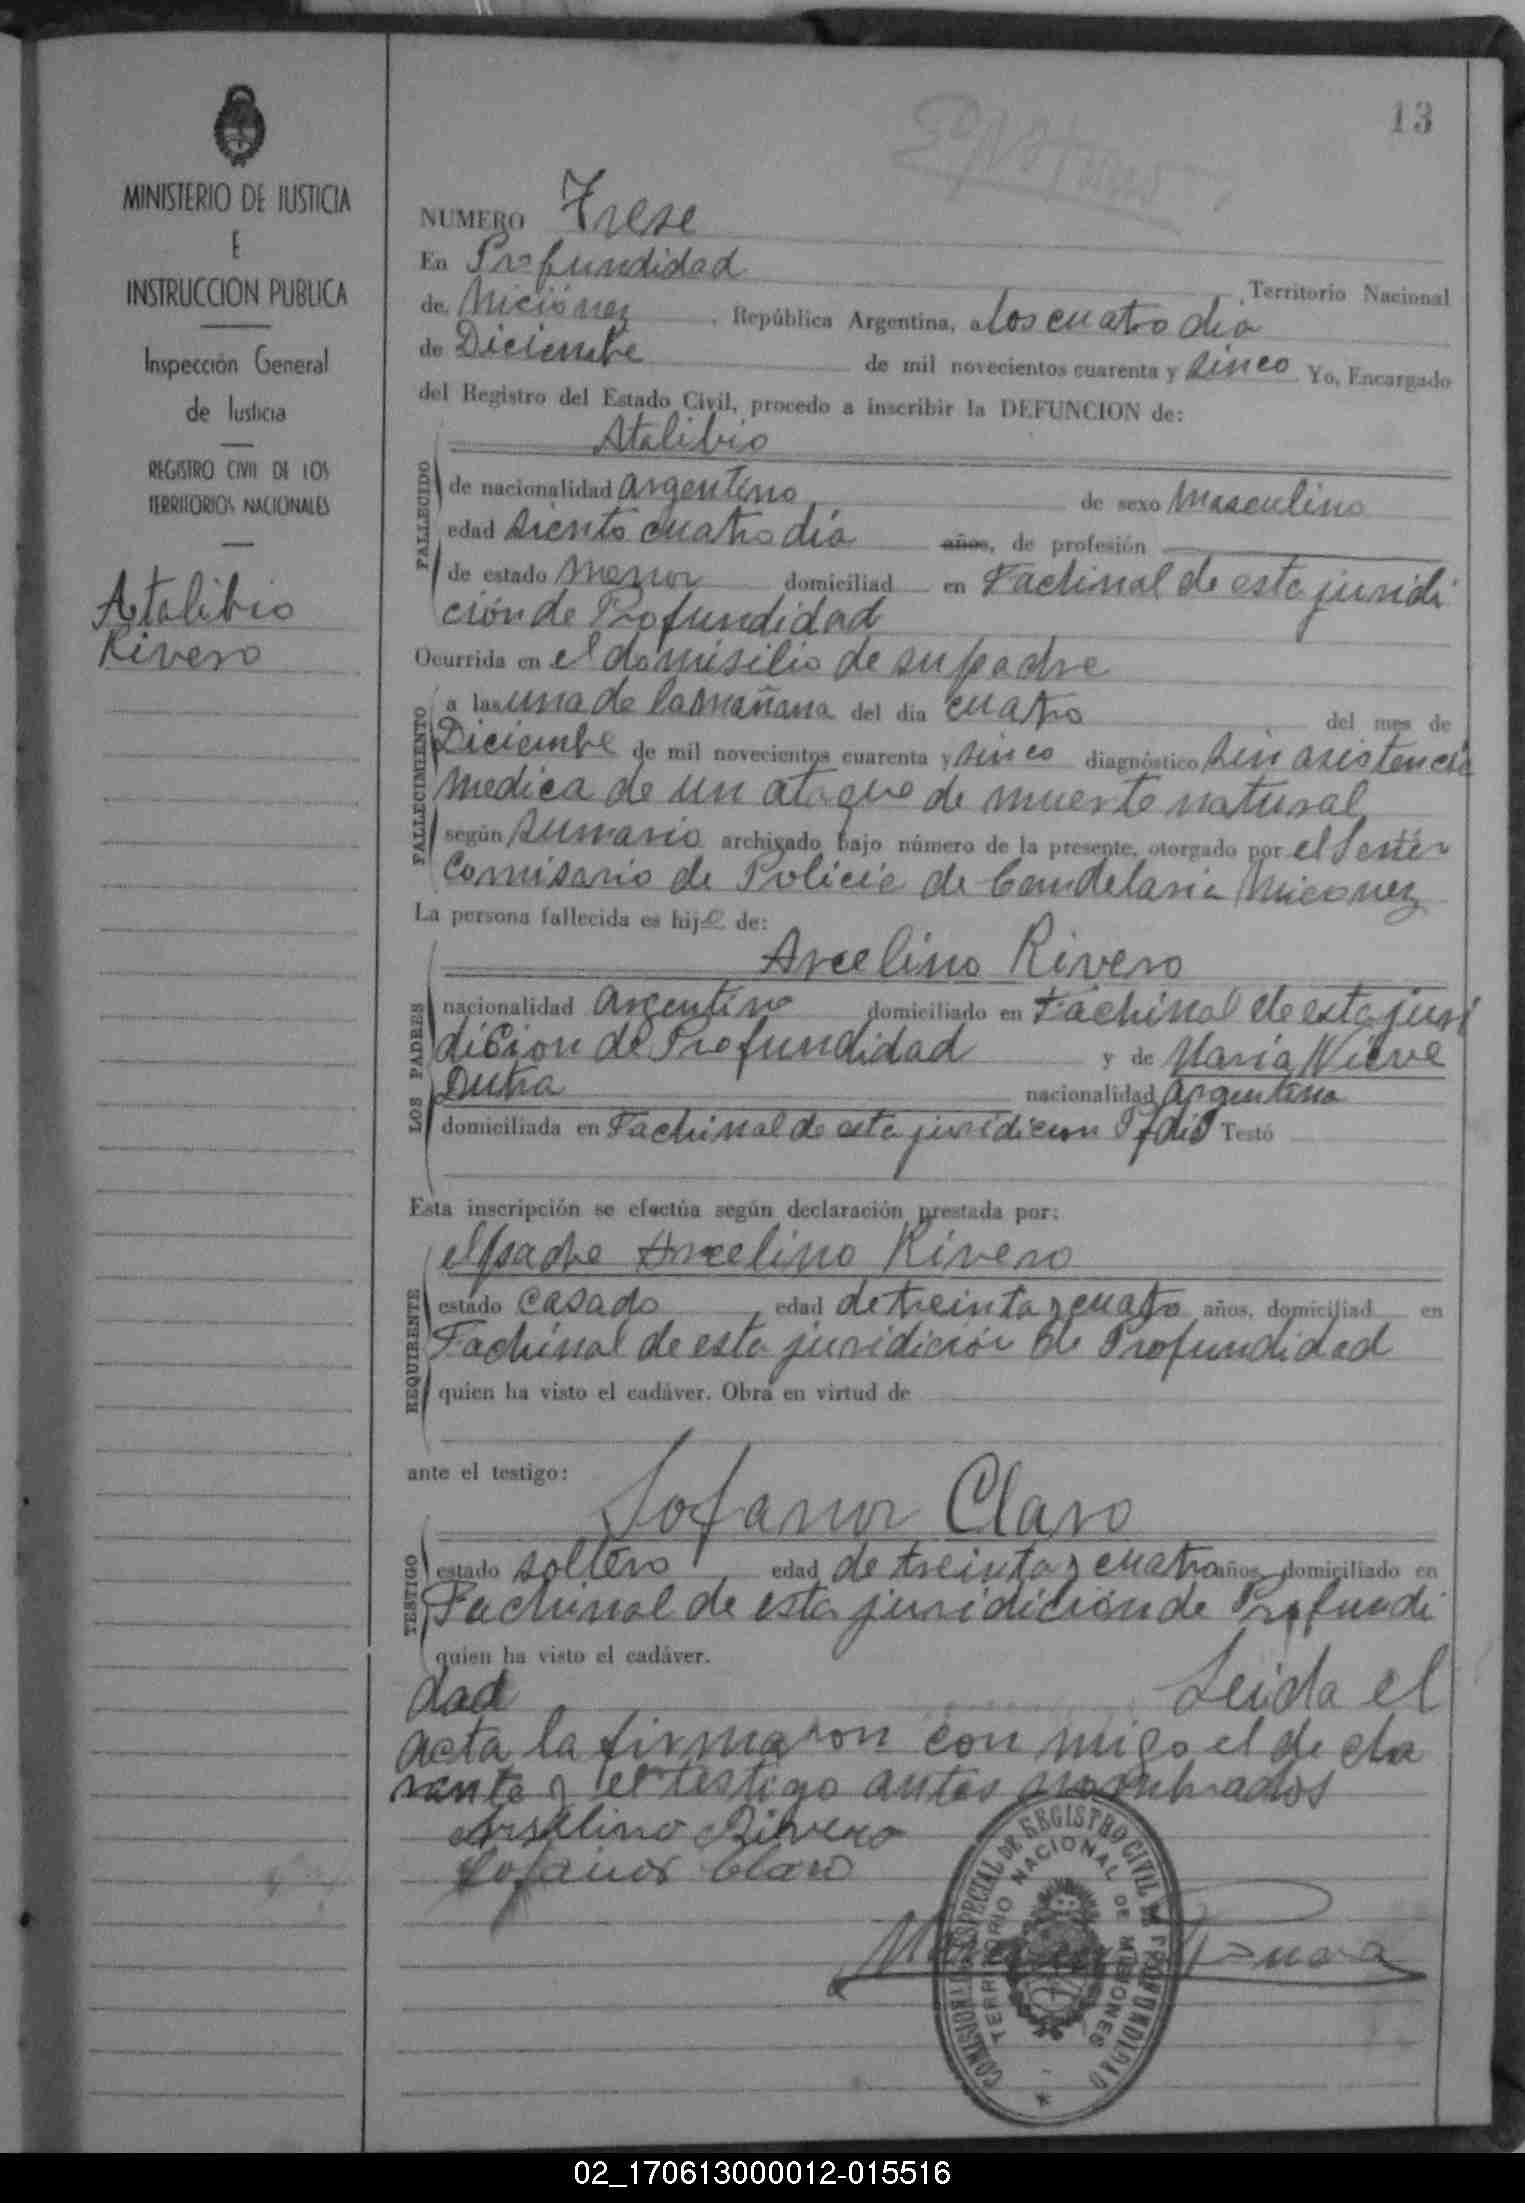 13
MINISTERIO DE JUSTICIA
E
INSTRUCCION PUBLICA
Inspección General
de Justicia
REGISTRO CIVIL DE LOS
TERRITORIOS NACIONALES
Atalibio
Rivero
NUMERO Trese
En Profundidad Territorio Nacional
de Miciónez, República Argentina, a los cuatro dia
de Diciembre de mil novecientos cuarenta y sinco Yo, Encargado
del Registro del Estado Civil, procedo a inscribir la DEFUNCION de:
Atalibio
FALLECIDO
de nacionalidad argentino de sexo masculino
edad siento cuatro día años, de profesión
de estado menor domiciliad en Fachinal de esta juridi
ción de Profundidad
Ocurrida en el domisilio de su padre
FALLECIMIENTO
a las una de la mañana del día cuatro del mes de
Diciembre de mil novecientos cuarenta y sinco diagnóstico sin asistencia
medica de un ataque de muerte natural
según sumario archivado bajo número de la presente, otorgado por el Señor
Comisario de Policia de Candelaria Miconez
La persona fallecida es hijo de:
Arcelino Rivero
LOS PADRES
nacionalidad argentino domiciliado en Fachinal de esta juri
dición de Profundidad y de Maria Nieve
Dutra nacionalidad argentina
domiciliada en Fachinal de esta juridicion Testó
Esta inscripción se efectúa según declaración prestada por:
el padre Arcelino Rivero
REQUIRENTE
estado casado edad de treinta y cuatro años, domiciliad en
Fachinal de esta juridición de Profundidad
quien ha visto el cadáver. Obra en virtud de
ante el testigo:
Sofanor Claro
TESTIGO
estado soltero edad de treinta y cuatro años, domiciliado en
Fachinal de esta juridición de Profundi
quien ha visto el cadáver.
dad Leida el
acta la firmaron con migo el decla
rante y el testigo antes nombrados
Arselino Rivero
Sofanor Claro
COMISION ESPECIAL DE REGISTRO CIVIL EN PROFUNDIDAD
TERRITORIO NACIONAL DE MISIONES
02_170613000012-015516